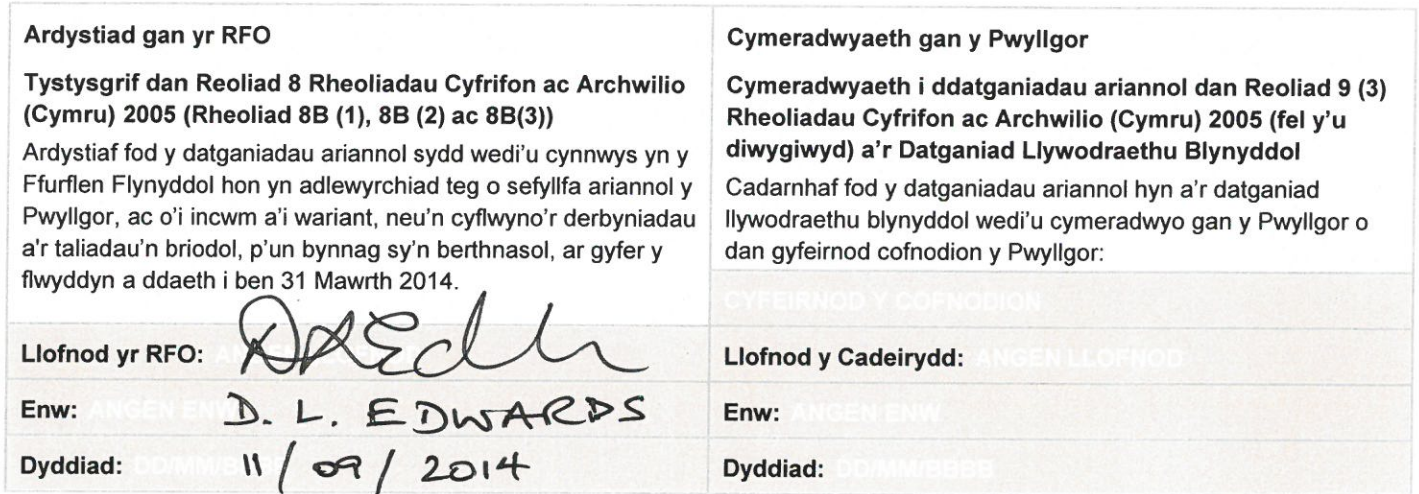 Ardystiad gan yr RFO
Tystysgrif dan Reoliad 8 Rheoliadau Cyfrifon ac Archwilio
(Cymru) 2005 (Rheoliad 8B (1), 8B (2) ac 8B(3))
Ardystiaf fod y datganiadau ariannol sydd wedi'u cynnwys yn y
Ffurflen Flynyddol hon yn adlewyrchiad teg o sefyllfa ariannol y
Pwyllgor, ac o'i incwm a'i wariant, neu'n cyflwyno'r derbyniadau
a'r taliadau'n briodol, p'un bynnag sy'n berthnasol, ar gyfer y
flwyddyn a ddaeth i ben 31 Mawrth 2014.
Llofnod yr RFO:
Enw: ANGEN ENW D. L. EDWARDS
Dyddiad: DD/MM/BBBB 11/09/2014
Cymeradwyaeth gan y Pwyllgor
Cymeradwyaeth i ddatganiadau ariannol dan Reoliad 9 (3)
Rheoliadau Cyfrifon ac Archwilio (Cymru) 2005 (fel y'u
diwygiwyd) a'r Datganiad Llywodraethu Blynyddol
Cadarnhaf fod y datganiadau ariannol hyn a'r datganiad
llywodraethu blynyddol wedi'u cymeradwyo gan y Pwyllgor o
dan gyfeirnod cofnodion y Pwyllgor:
CYFEIRNOD Y COFNODION
Llofnod y Cadeirydd: ANGEN LLOFNOD
Enw: ANGEN ENW
Dyddiad: DD/MM/BBBB